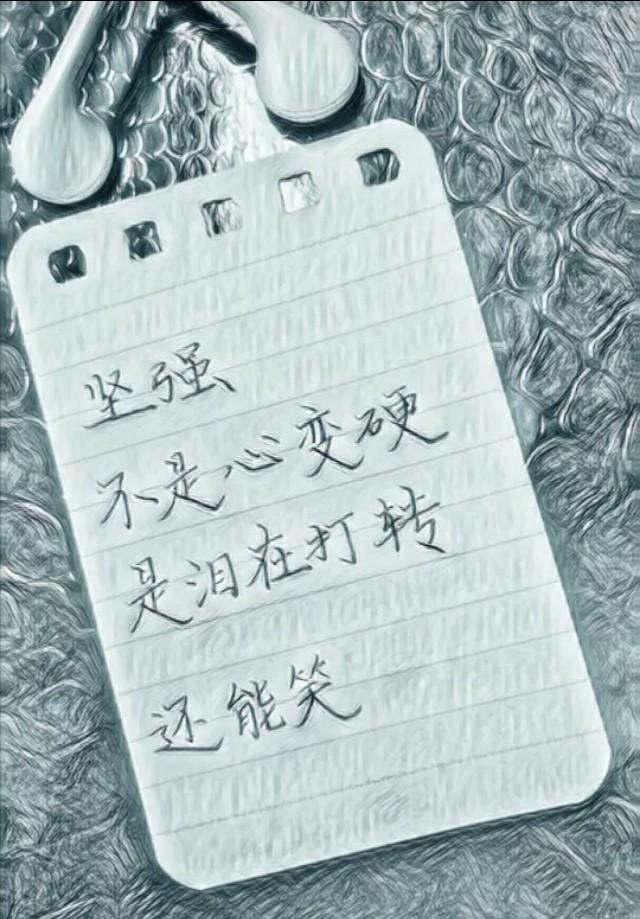 坚强
不是心变硬
是泪在打转
还能笑